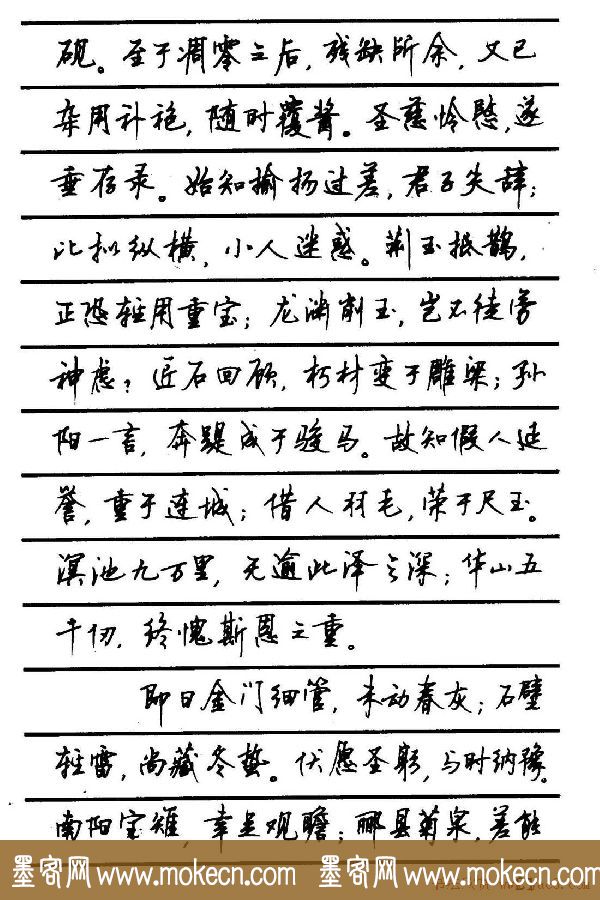 砚。至于凋零之后，残缺所余，又已
杂用补袍，随时覆酱。圣慈怜愍，遂
垂存录。始知揄扬过差，君子失辞；
比拟纵横，小人迷惑。荆玉抵鹊，
正恐轻用重宝；龙渊削玉，岂不徒劳
神虑？匠石回顾，朽材变于雕梁；孙
阳一言，奔踶成于骏马。故知假人延
誉，重于连城；借人羽毛，荣于尺玉。
溟池九万里，无逾此泽之深；华山五
千仞，终愧斯恩之重。
即日金门细管，未动春灰；石壁
轻雷，尚藏冬蛰。伏愿圣躬，与时纳豫。
南阳宝雉，幸足观瞻；郦县菊泉，差能
墨客网 www.mokecn.com 墨客网 www.mokecn.com